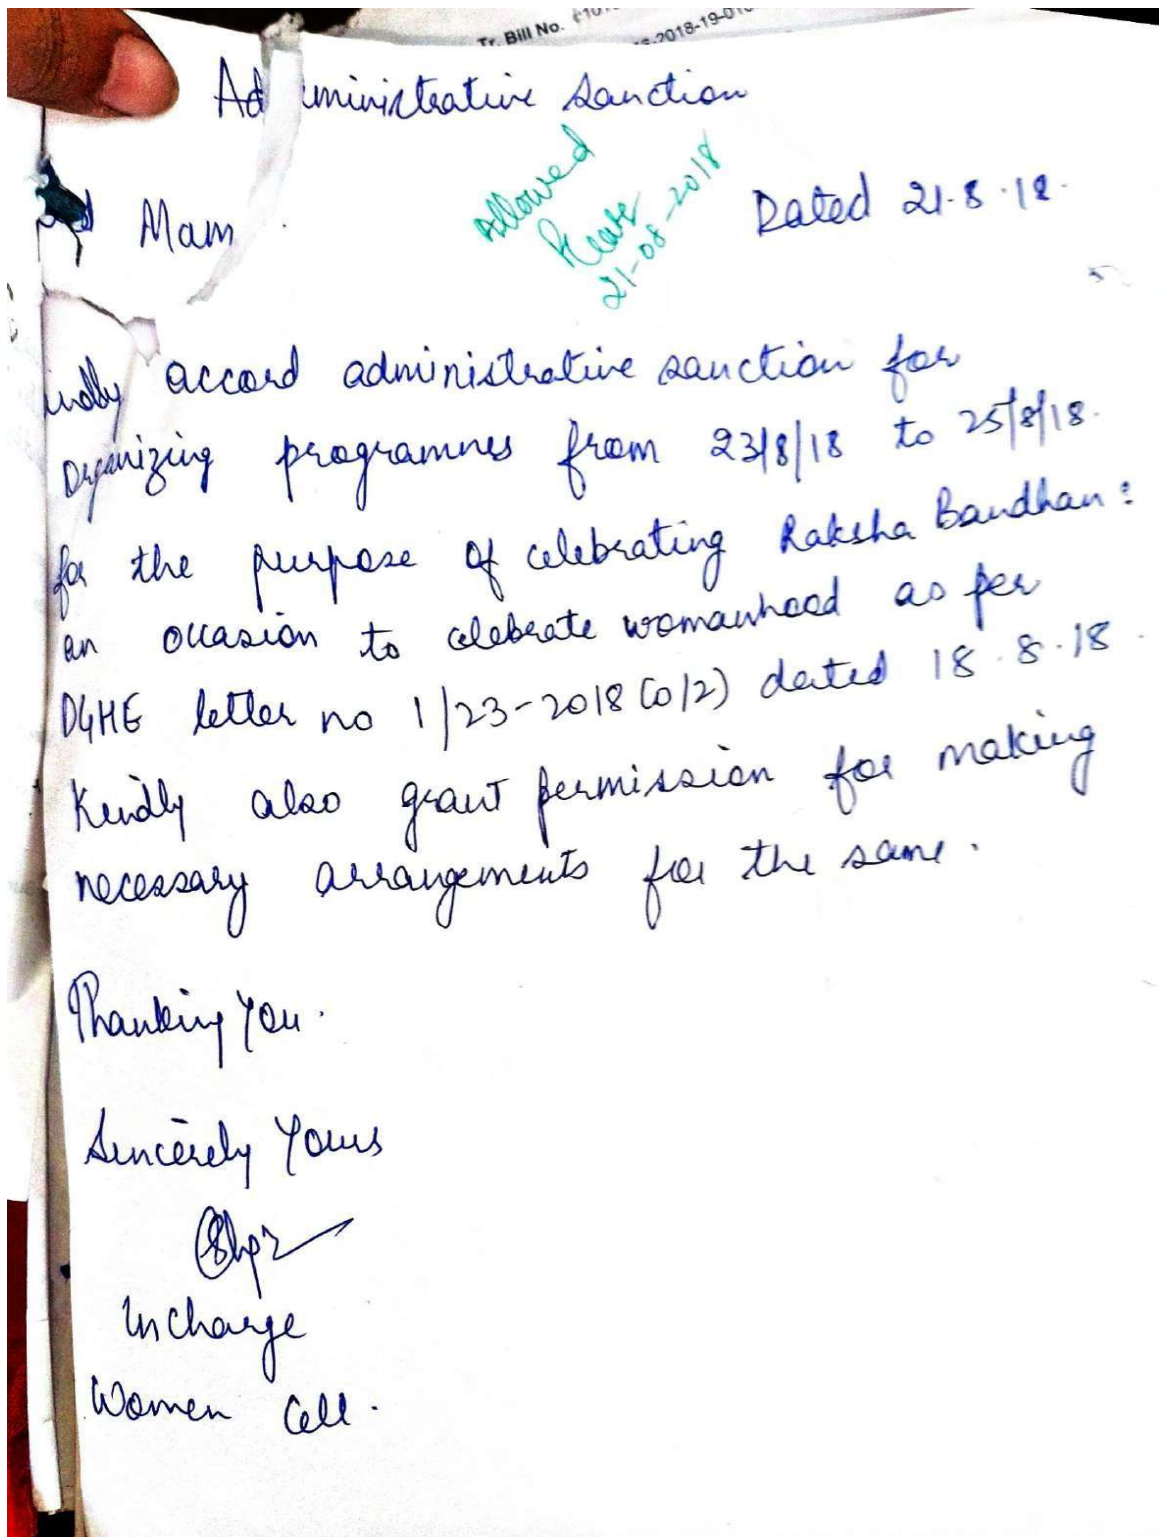 Tr. Bill No.
2018-19-01
Administrative Sanction
Allowed
21-08-2018
Mam
Dated 21.8.18.
indly accord administrative sanction for
Organizing programmes from 23/8/18 to 25/8/18.
for the purpose of celebrating Raksha Bandhan:
an occasion to celebrate womanhood as per
DGHE letter no 1/23-2018 Co(2) dated 18.8.18.
Kindly also grant permission for making
necessary arrangements for the same.
Thanking You.
Sincerely Yours
Incharge
Women Cell.